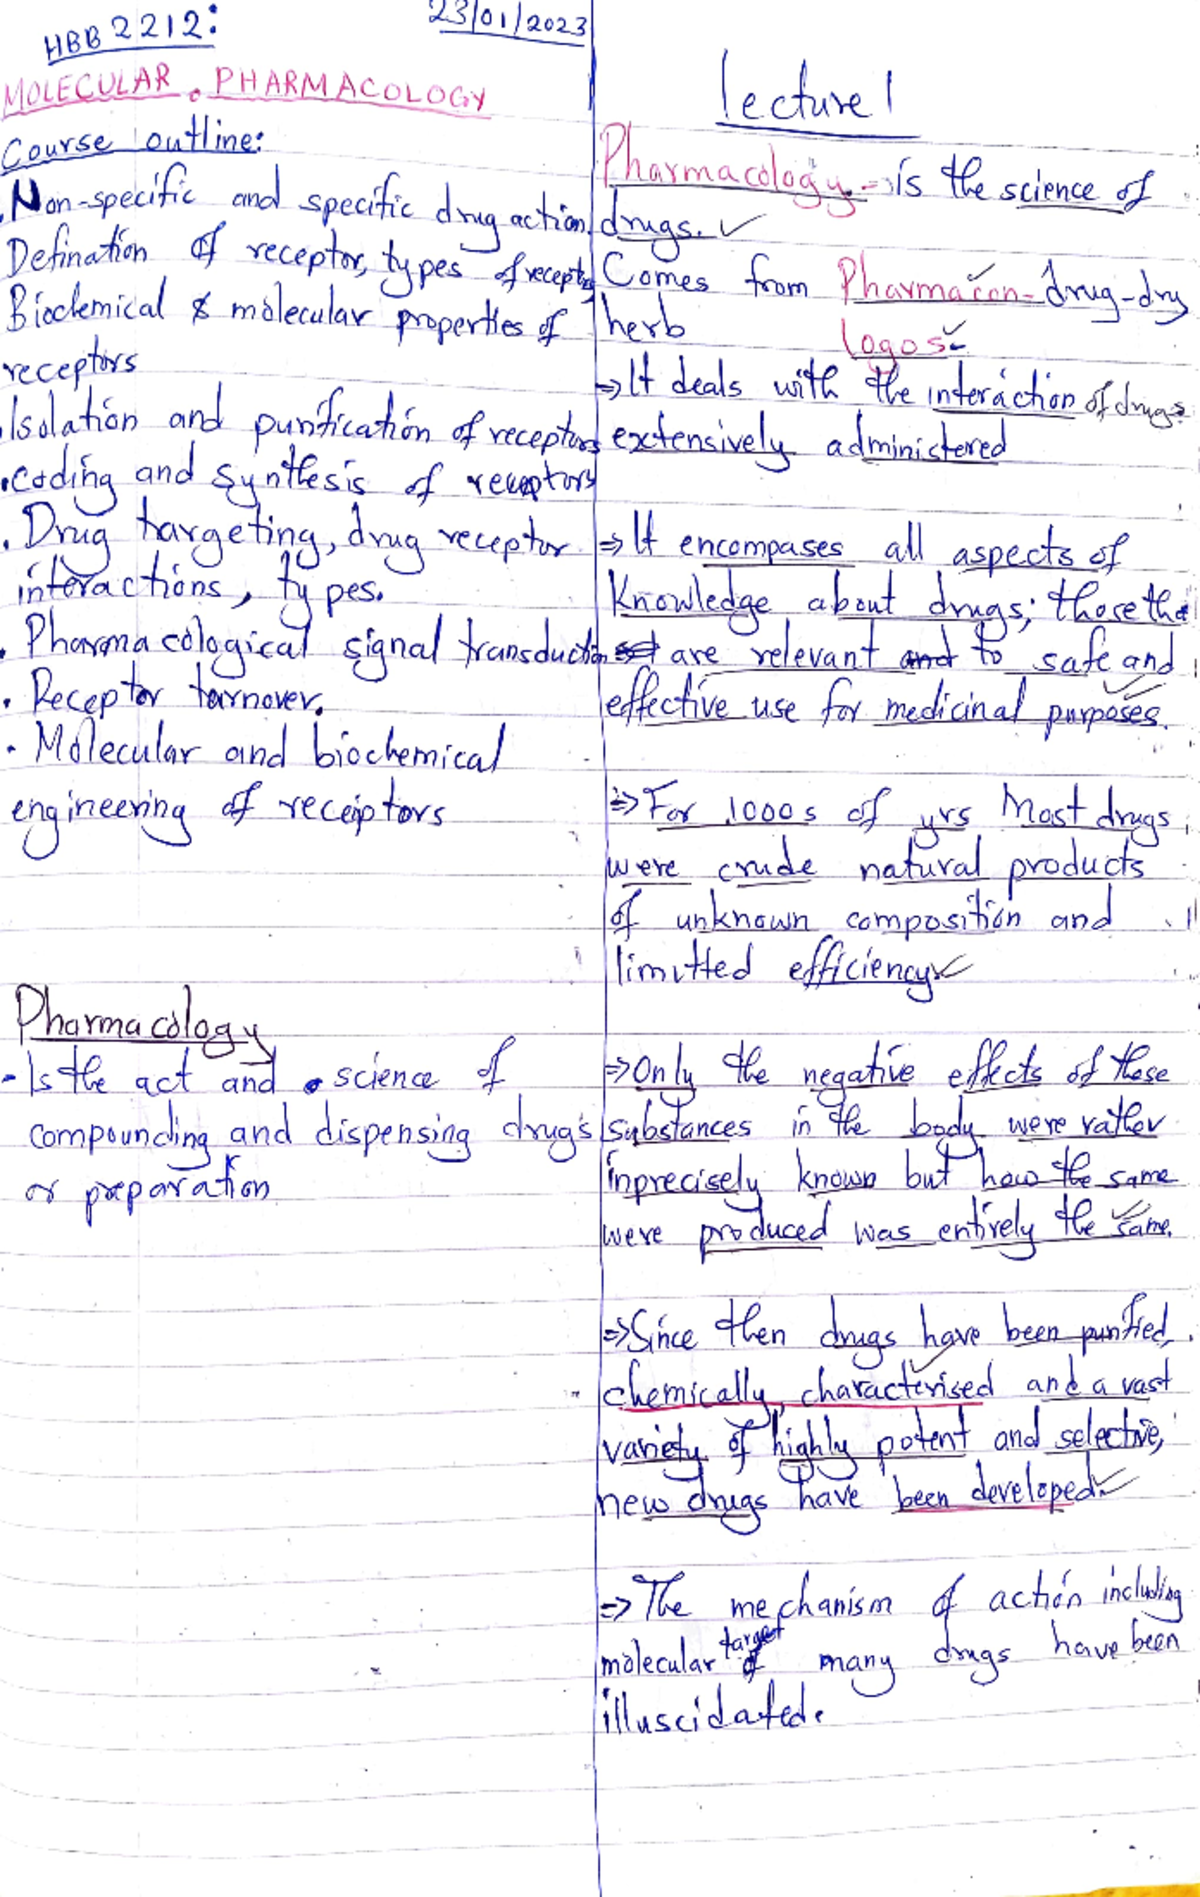 HBB 2212:
23/01/2023
MOLECULAR PHARMACOLOGY
Course outline:
.Non-specific and specific drug action.
Defination of receptor, types of receptor
Biochemical & molecular properties of
receptors
.Isolation and purification of receptors
.Coding and synthesis of receptors
. Drug targeting, drug receptor
interactions, types.
. Pharmacological signal transduction
. Receptor turnover.
. Molecular and biochemical
engineering of receiptors
Pharmacology
- Is the act and science of
compouncling and dispensing drugs
or preparation
Lecture 1
Pharmacology → is the science of
drugs. ✓
Comes from Pharmacon - drug - dry
herb
logos
⇒ It deals with the interaction of drugs
extensively administered
⇒ It encompases all aspects of
Knowledge about drugs; those that
are relevant and to safe and
effective use for medicinal purposes.
⇒ For 1000s of yrs Most drugs
were crude natural products
of unknown composition and
limitted efficiency
⇒ Only the negative effects of these
substances in the body were rather
inprecisely known but how the same
were produced was entirely the same.
⇒ Since then drugs have been purified,
chemically, characterised and a vast
variety of highly potent and selective,
new drugs have been developed.
⇒ The mechanism of action including
molecular target of many drugs have been
illuscidated.